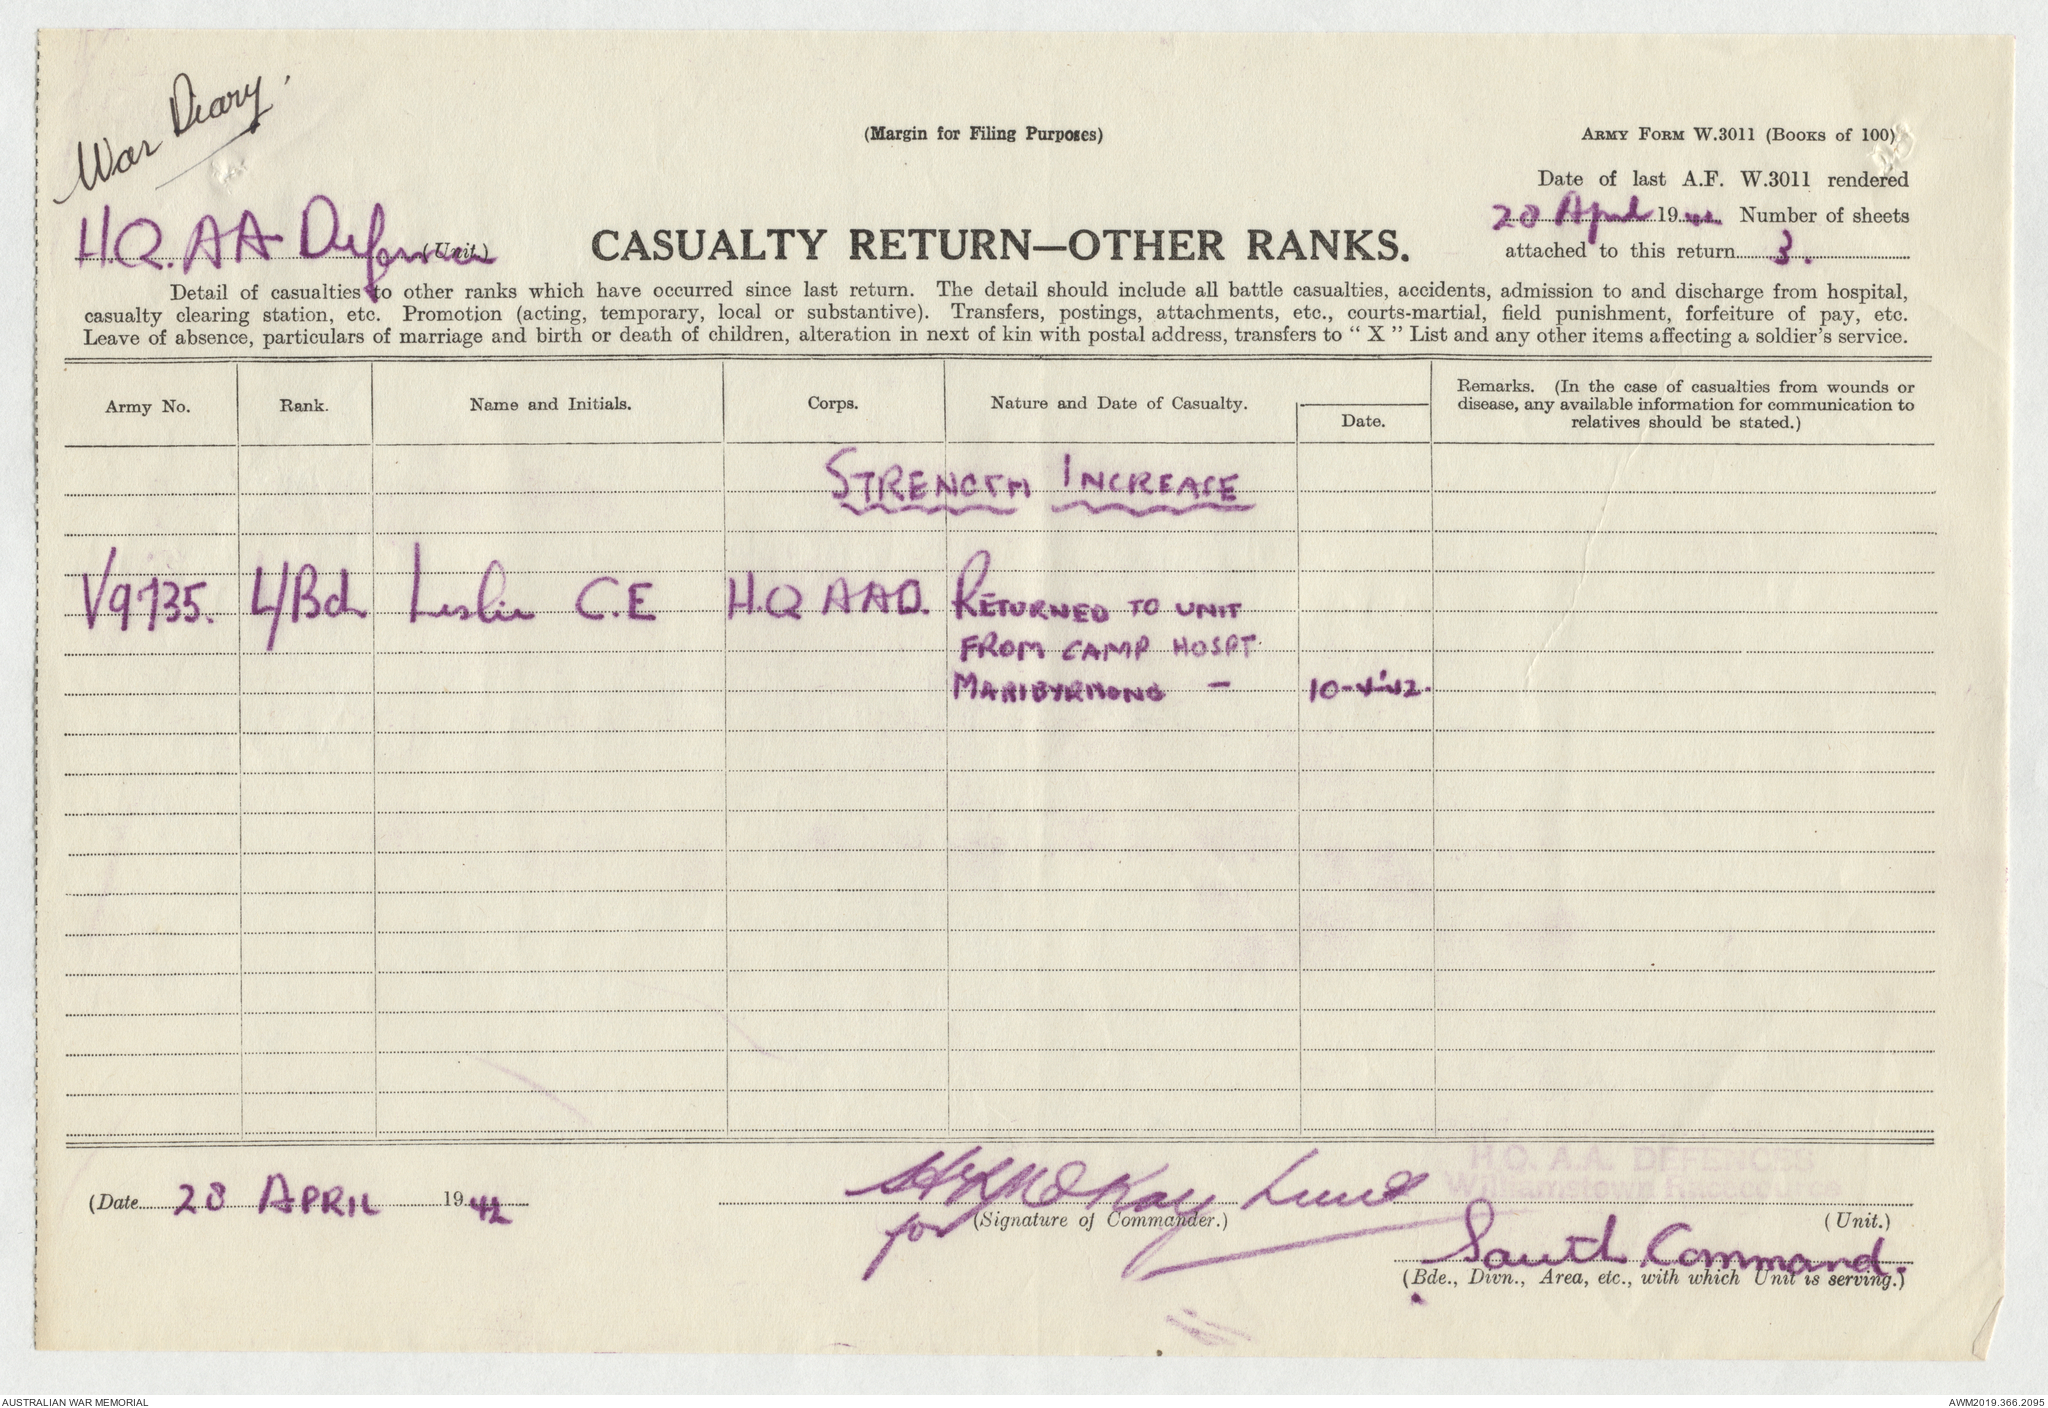 War Diary.
(Margin for Filing Purposes)
ARMY FORM W.3011 (Books of 100)
Date of last A.F. W.3011 rendered
20 April 1942 Number of sheets
attached to this return 3.
H.Q. AA Defences (Unit)
CASUALTY RETURN—OTHER RANKS.
Detail of casualties to other ranks which have occurred since last return. The detail should include all battle casualties, accidents, admission to and discharge from hospital,
casualty clearing station, etc. Promotion (acting, temporary, local or substantive). Transfers, postings, attachments, etc., courts-martial, field punishment, forfeiture of pay, etc.
Leave of absence, particulars of marriage and birth or death of children, alteration in next of kin with postal address, transfers to “ X ” List and any other items affecting a soldier’s service.
Army No. Rank. Name and Initials. Corps. Nature and Date of Casualty. Date. Remarks. (In the case of casualties from wounds or
disease, any available information for communication to
relatives should be stated.)
STRENGTH INCREASE
V9735. L/Bdr Leslie C.E H.Q AAD. RETURNED TO UNIT
FROM CAMP HOSPT.
MARIBYRNONG – 10-4-42.
(Date 20 APRIL 1942
Lieut
for (Signature of Commander.)
H.Q. A.A. DEFENCES
Williamstown Racecourse
(Unit.)
South Command.
(Bde., Divn., Area, etc., with which Unit is serving.)
AUSTRALIAN WAR MEMORIAL
AWM2019.366.2095